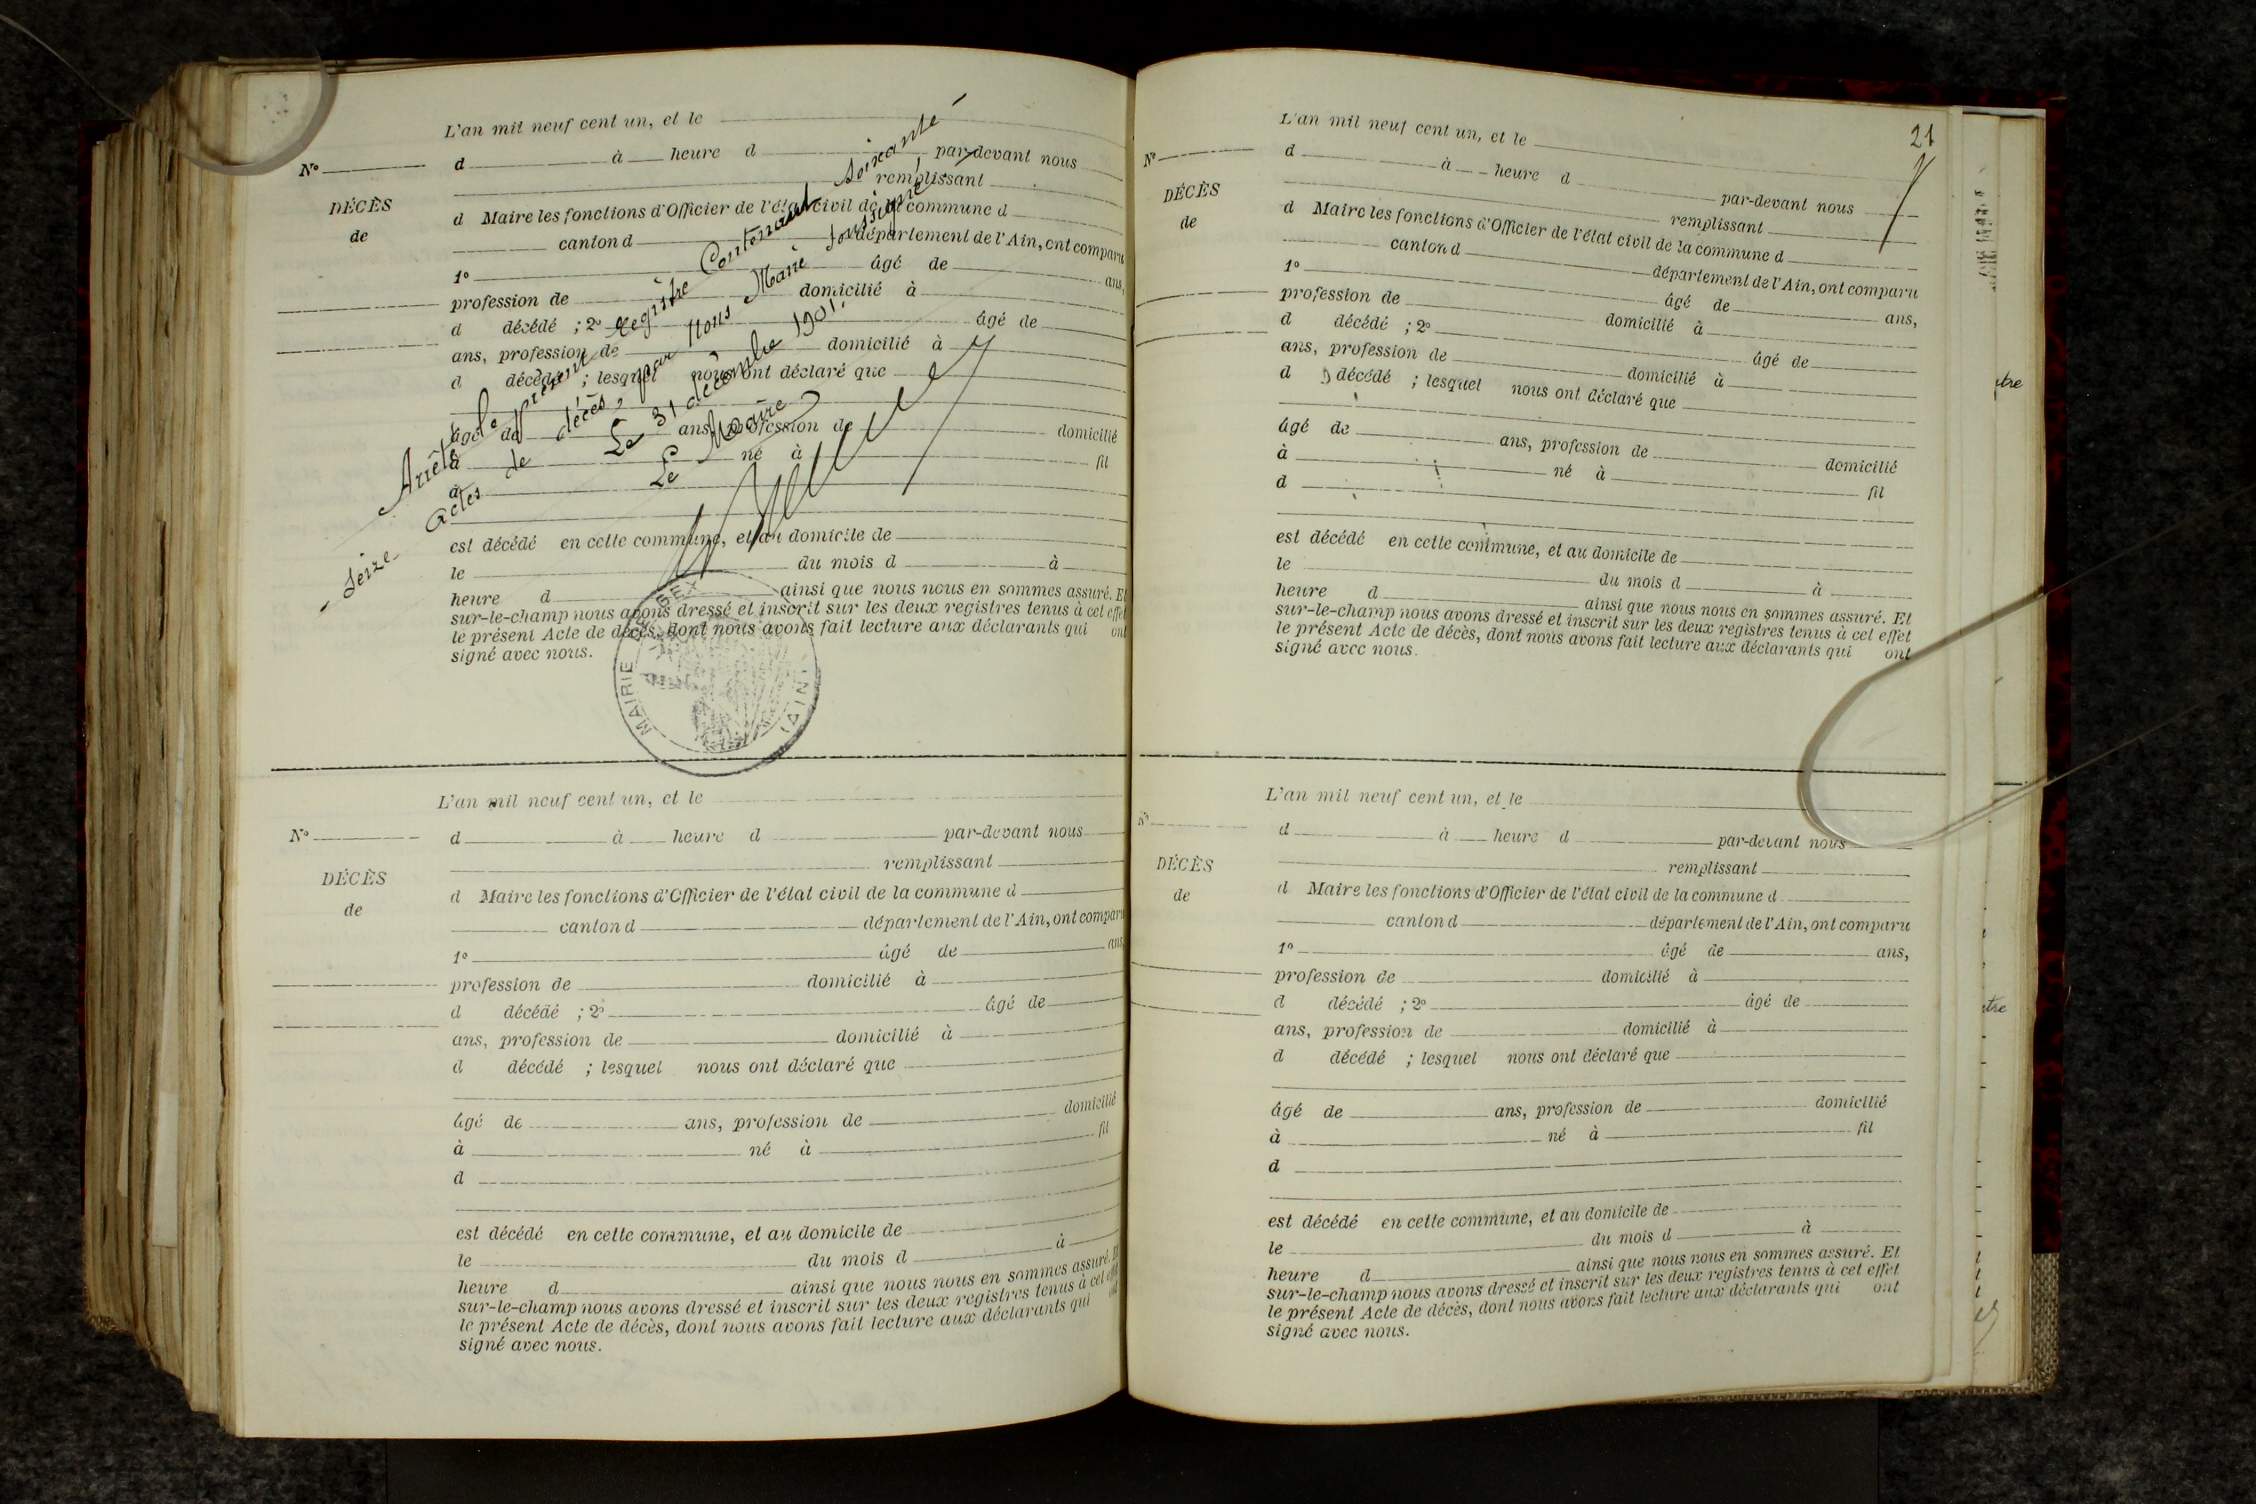 L'an mil neuf cent un, et le
N° d à heure d par-devant nous
DÉCÈS remplissant
de d Maire les fonctions d'Officier de l'état civil de la commune d
canton d département de l'Ain, ont comparu
1° âgé de ans,
profession de domicilié à
d décédé ; 2° âgé de
ans, profession de domicilié à
d décédé ; lesquel nous ont déclaré que
âgé de ans, profession de domicilié
à né à fil
d
est décédé en cette commune, et au domicile de
le du mois d à
heure d ainsi que nous nous en sommes assuré. Et
sur-le-champ nous avons dressé et inscrit sur les deux registres tenus à cet effet
le présent Acte de décès, dont nous avons fait lecture aux déclarants qui ont
signé avec nous.
Arrêté le présent registre Contenant soixante
- seize actes de décès, par Nous Maire soussigné,
Le 31 décembre 1901.
Le Maire
MAIRIE DE GEX
(AIN)
L'an mil neuf cent un, et le
N° d à heure d par-devant nous
remplissant
DÉCÈS d Maire les fonctions d'Officier de l'état civil de la commune d
de canton d département de l'Ain, ont comparu
1° âgé de ans,
profession de domicilié à
d décédé ; 2° âgé de
ans, profession de domicilié à
d décédé ; lesquel nous ont déclaré que
âgé de ans, profession de domicilié
à né à fil
d
est décédé en cette commune, et au domicile de
le du mois d à
heure d ainsi que nous nous en sommes assuré. Et
sur-le-champ nous avons dressé et inscrit sur les deux registres tenus à cet effet
le présent Acte de décès, dont nous avons fait lecture aux déclarants qui ont
signé avec nous.
21
L'an mil neuf cent un, et le
N° d à heure d par-devant nous
DÉCÈS remplissant
de d Maire les fonctions d'Officier de l'état civil de la commune d
canton d département de l'Ain, ont comparu
1° âgé de ans,
profession de domicilié à
d décédé ; 2° âgé de
ans, profession de domicilié à
d décédé ; lesquel nous ont déclaré que
âgé de ans, profession de domicilié
à né à fil
d
est décédé en cette commune, et au domicile de
le du mois d à
heure d ainsi que nous nous en sommes assuré. Et
sur-le-champ nous avons dressé et inscrit sur les deux registres tenus à cet effet
le présent Acte de décès, dont nous avons fait lecture aux déclarants qui ont
signé avec nous.
L'an mil neuf cent un, et le
N° d à heure d par-devant nous
remplissant
DÉCÈS d Maire les fonctions d'Officier de l'état civil de la commune d
de canton d département de l'Ain, ont comparu
1° âgé de ans,
profession de domicilié à
d décédé ; 2° âgé de
ans, profession de domicilié à
d décédé ; lesquel nous ont déclaré que
âgé de ans, profession de domicilié
à né à fil
d
est décédé en cette commune, et au domicile de
le du mois d à
heure d ainsi que nous nous en sommes assuré. Et
sur-le-champ nous avons dressé et inscrit sur les deux registres tenus à cet effet
le présent Acte de décès, dont nous avons fait lecture aux déclarants qui ont
signé avec nous.